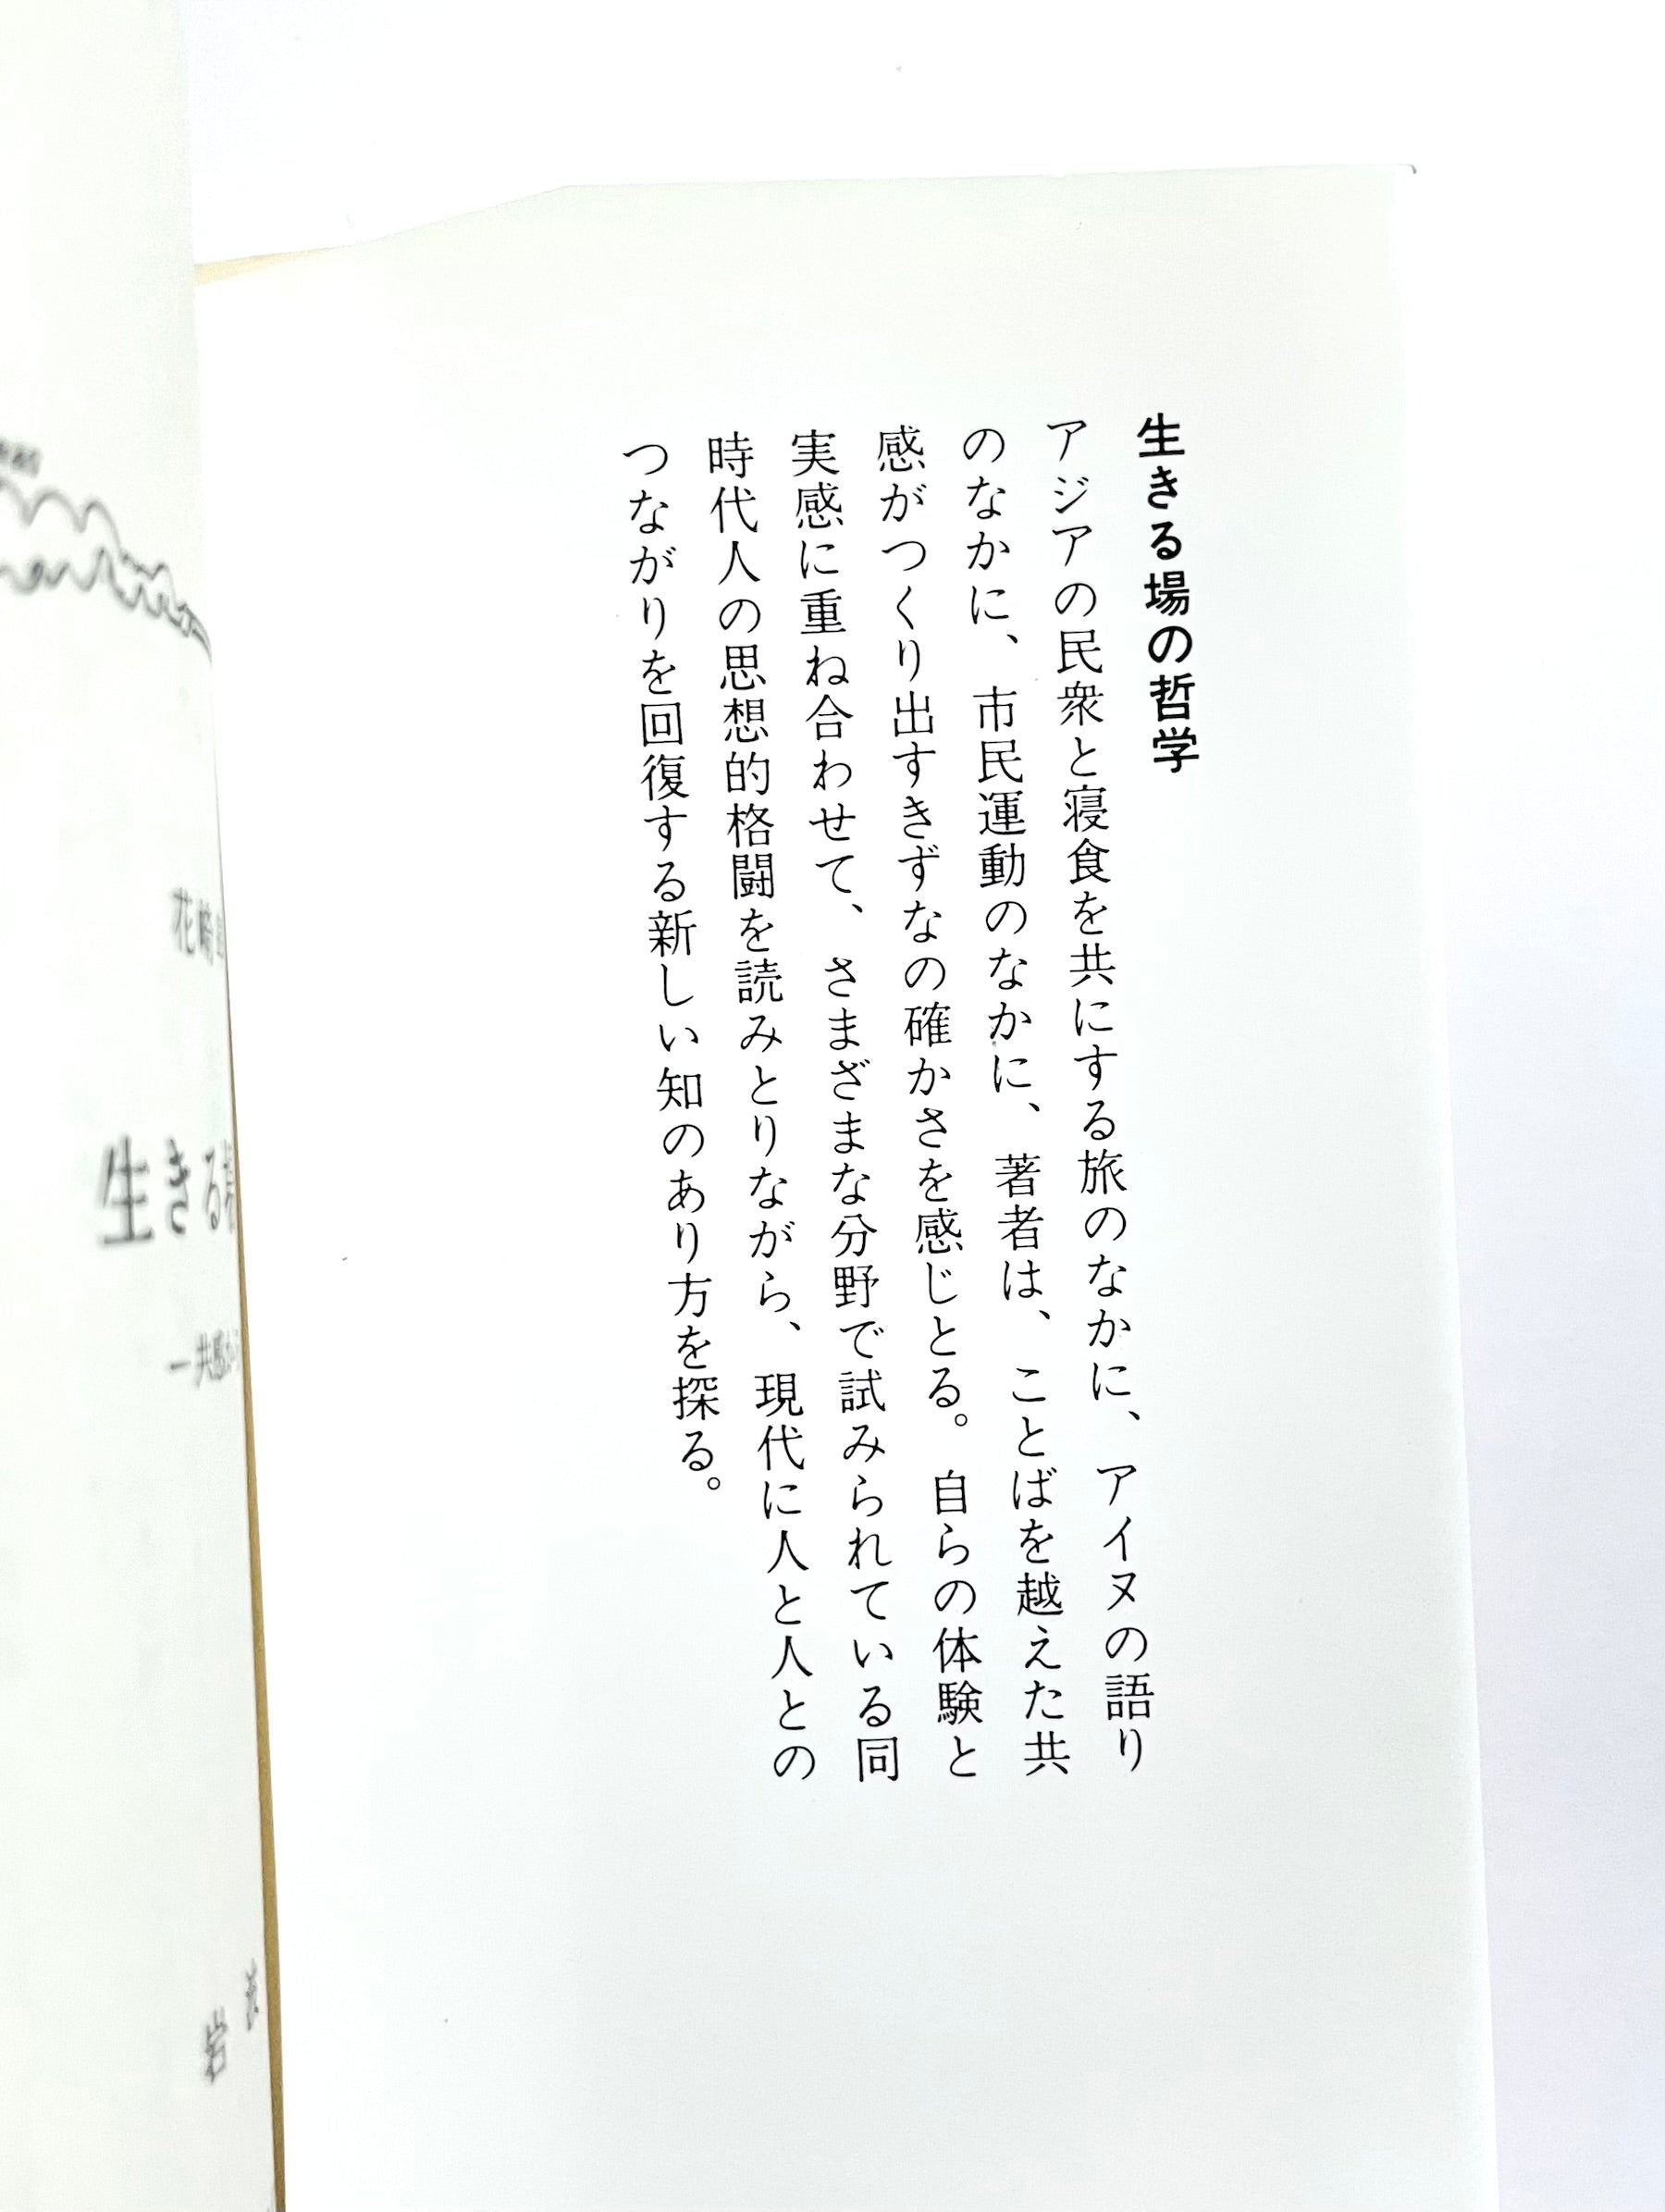 生きる場の哲学
アジアの民衆と寝食を共にする旅のなかに、アイヌの語り
のなかに、市民運動のなかに、著者は、ことばを越えた共
感がつくり出すきずなの確かさを感じとる。自らの体験と
実感に重ね合わせて、さまざまな分野で試みられている同
時代人の思想的格闘を読みとりながら、現代に人と人との
つながりを回復する新しい知のあり方を探る。
花崎
生きる場
一共感から
岩